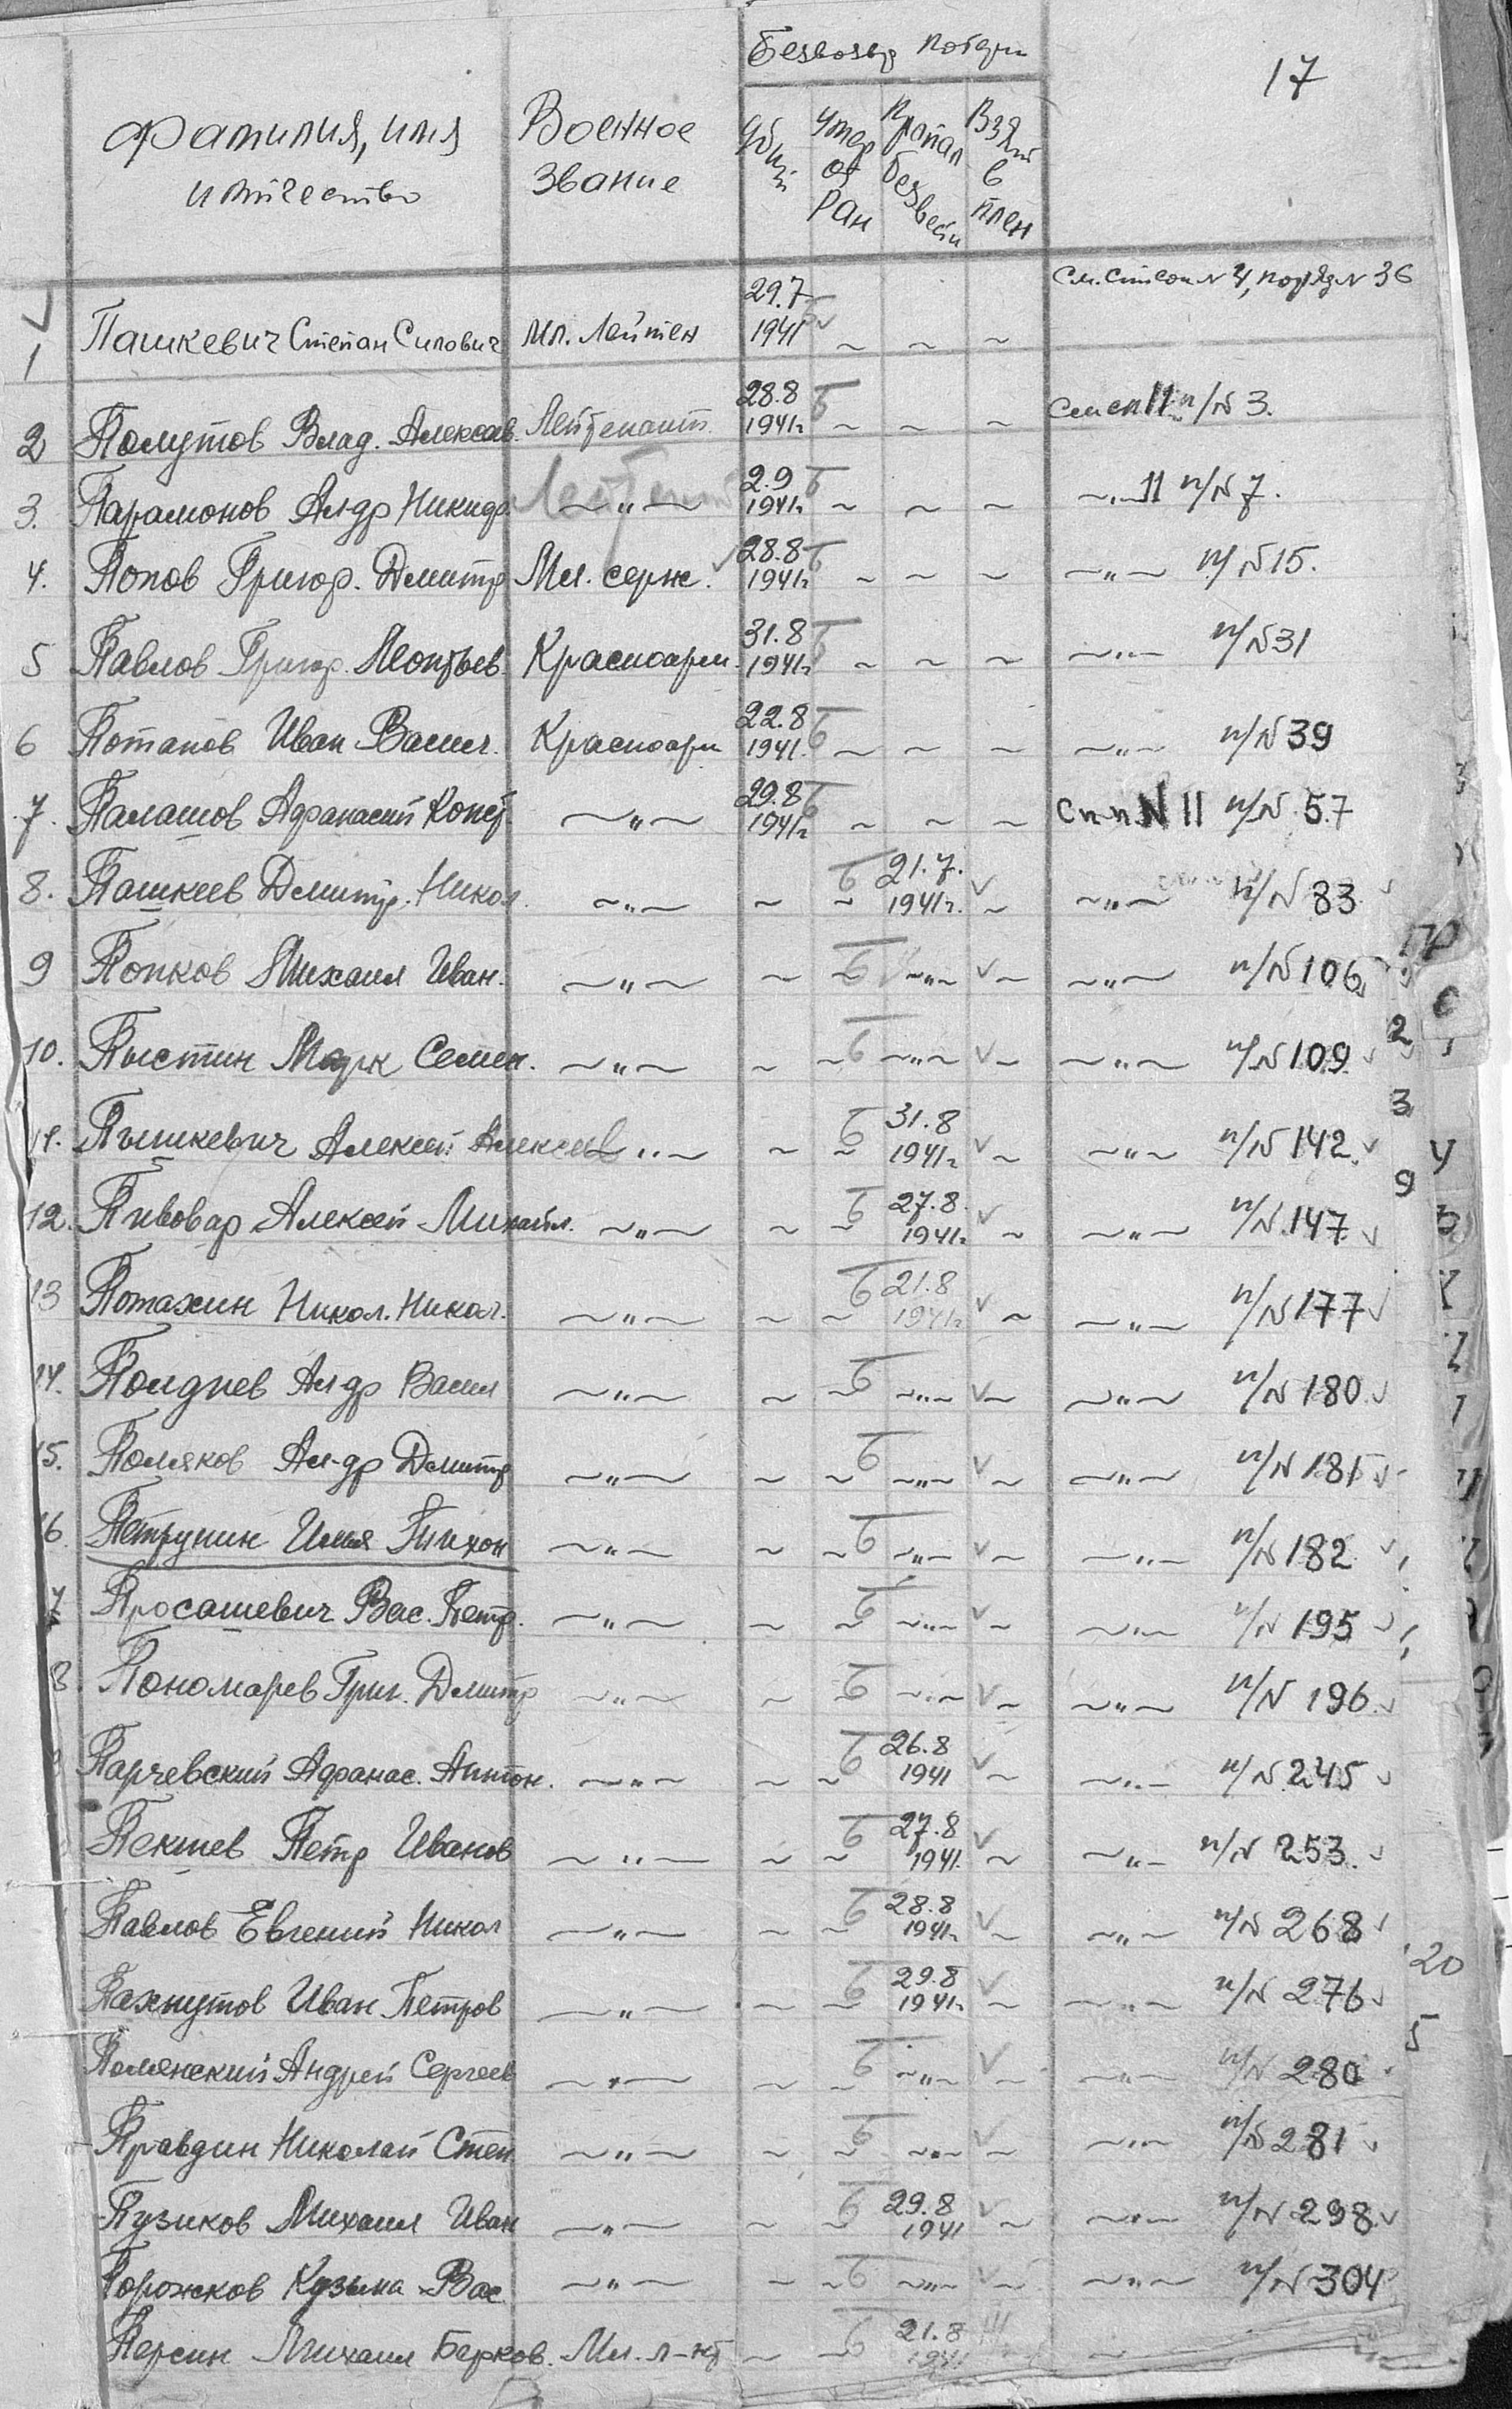 17
Безвозвр потери
Фамилия, имя и отчество
Военное звание
Убит
Умер от ран
Пропал без вести
Взят в плен
1 Пашкевич Степан Силович Мл. Лейтен 29.7 1941 ~ ~ ~ См. список N 4, поряд N 36
2 Полутов Влад. Алексав. Лейтенант 28.8 1941г ~ ~ ~ См сп 11 п/N 3.
3. Парамонов Ал-др Никидр. ~"~ 2.9 1941г ~ ~ ~ ~"~ 11 п/N 7.
4. Попов Григор. Дмитр Мл. серж. 28.8 1941г ~ ~ ~ ~"~ п/N 15.
5 Павлов Григор. Леонтьев. Красноарм. 31.8 1941г ~ ~ ~ ~"~ п/N 31
6 Потапов Иван Васил. Красноарм 22.8 1941. ~ ~ ~ ~"~ п/N 39
7. Палашов Афанасий Конст. ~"~ 29.8 1941г ~ ~ ~ Сп п N 11 п/N 57
8. Пашкеев Дмитр. Никол. ~"~ ~ ~ 21.7. 1941г. ~ ~"~ п/N 83
9 Попков Михаил Иван. ~"~ ~ ~"~ ~ ~"~ п/N 106
10. Пыстин Марк Семен. ~"~ ~ ~ ~"~ ~ ~"~ п/N 109
11. Пышкевич Алексей Алексеев ~"~ ~ ~ 31.8 1941г ~ ~"~ п/N 142
12. Пивовар Алексей Михайл. ~"~ ~ ~ 27.8 1941г ~ ~"~ п/N 147
13 Потахин Никол. Никол. ~"~ ~ ~ 21.8 1941г ~ ~"~ п/N 177
14. Полднев Ал-др Васил ~"~ ~ ~ ~"~ ~ ~"~ п/N 180
15. Поляков Ал-др Дмитр ~"~ ~ ~ ~"~ ~ ~"~ п/N 181
16. Петрунин Илья Тихон ~"~ ~ ~ ~"~ ~ ~"~ п/N 182
7 Просашевич Вас. Петр. ~"~ ~ ~ ~"~ ~ ~"~ п/N 195
8 Пономарев Григ. Дмитр ~"~ ~ ~ ~"~ ~ ~"~ п/N 196
Парчевский Афанас. Антон. ~"~ ~ ~ 26.8 1941 ~ ~"~ п/N 245
Пекшев Петр Иванов ~"~ ~ ~ 27.8 1941. ~ ~"~ п/N 253
Павлов Евгений Никол ~"~ ~ ~ 28.8 1941г ~ ~"~ п/N 268
Пахнутов Иван Петров ~"~ ~ ~ 29.8 1941г ~ ~"~ п/N 276
Полянский Андрей Сергеев ~"~ ~ ~ ~"~ ~ ~"~ п/N 280
Правдин Николай Степ ~"~ ~ ~ ~"~ ~ ~"~ п/N 281
Пузиков Михаил Иван ~"~ ~ ~ 29.8 1941 ~ ~"~ п/N 298
Порожков Кузьма Вас ~"~ ~ ~ ~"~ ~ ~"~ п/N 304
Персин Михаил Берков. Мл. л-нт ~ ~ 21.8 1941 ~